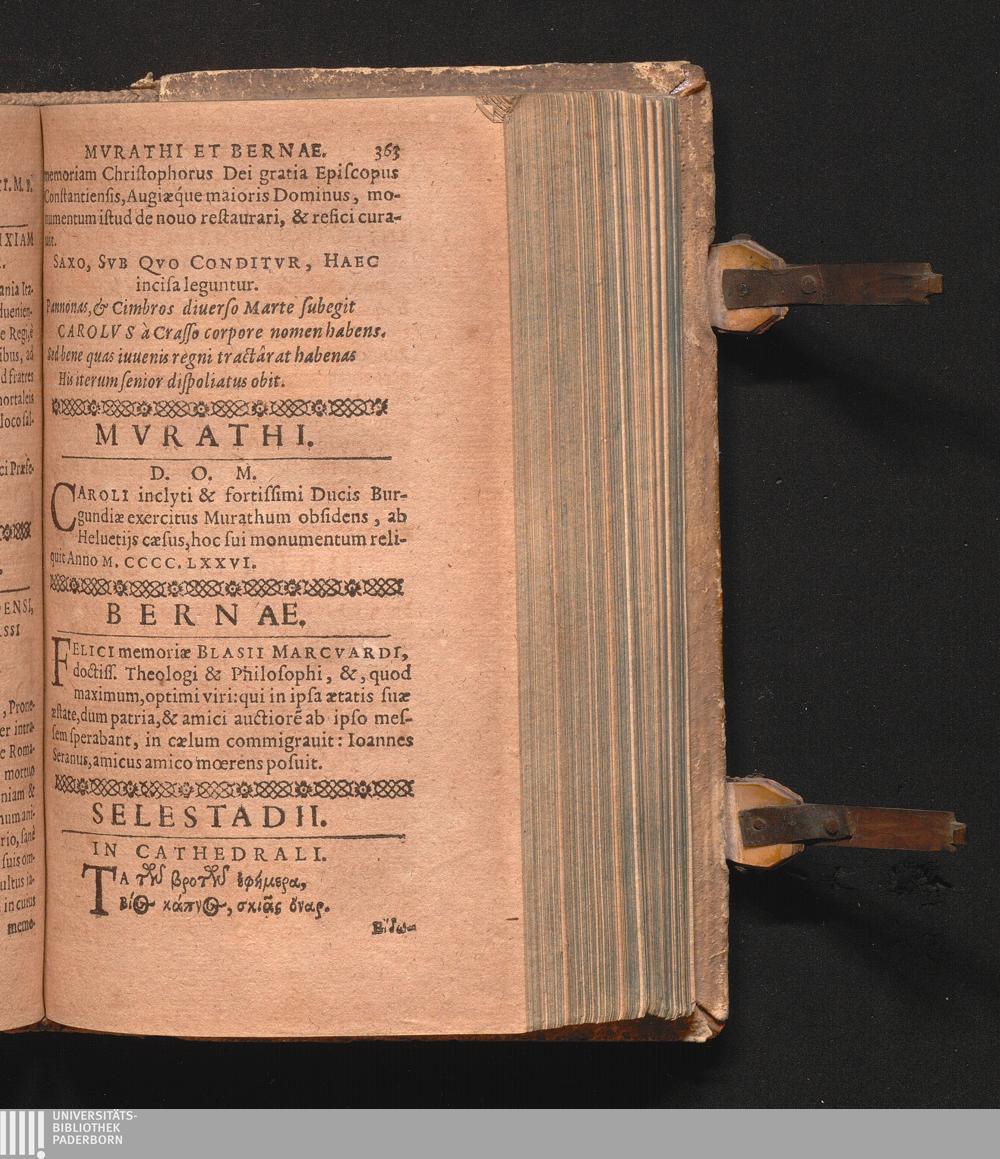 MVRATHI ET BERNAE. 363
memoriam Chriſtophorus Dei gratia Epiſcopus
Conſtantienſis, Augiæque maioris Dominus, mo-
numentum iſtud de nouo reſtaurari, & refici cura-
uit.
SAXO, SVB QVO CONDITVR, HAEC
inciſa leguntur.
Pannonas, & Cimbros diuerſo Marte ſubegit
CAROLVS à Craſſo corpore nomen habens.
Sed bene quas iuuenis regni tractârat habenas
His iterum ſenior diſpoliatus obit.
MVRATHI.
D. O. M.
CAROLI inclyti & fortiſſimi Ducis Bur-
gundiæ exercitus Murathum obſidens, ab
Heluetijs cæſus, hoc ſui monumentum reli-
quit Anno M. CCCC. LXXVI.
BERNAE.
FELICI memoriæ BLASII MARCVARDI,
doctiſſ. Theologi & Philoſophi, &, quod
maximum, optimi viri: qui in ipſa ætatis ſuæ
æſtate, dum patria, & amici auctiorẽ ab ipſo meſ-
ſem ſperabant, in cælum commigrauit: Ioannes
Seranus, amicus amico mœrens poſuit.
SELESTADII.
IN CATHEDRALI.
ΤΑ τῶν βροτῶν ἐφήμερα,
βίος κάπνος, σκιᾶς ὄναρ.
IXIAM
ania Ita-
duenien-
e Regi, è
ibus, ad
d fratres
mortales
loco ſal-
ci Præfe-
DENSI,
SSI
, Prone-
er intra-
e Roma-
mortuo
niam &
num ani-
rio, ſanè
ſuis om-
ultus ta-
in cuius
memo-
UNIVERSITÄTS-
BIBLIOTHEK
PADERBORN